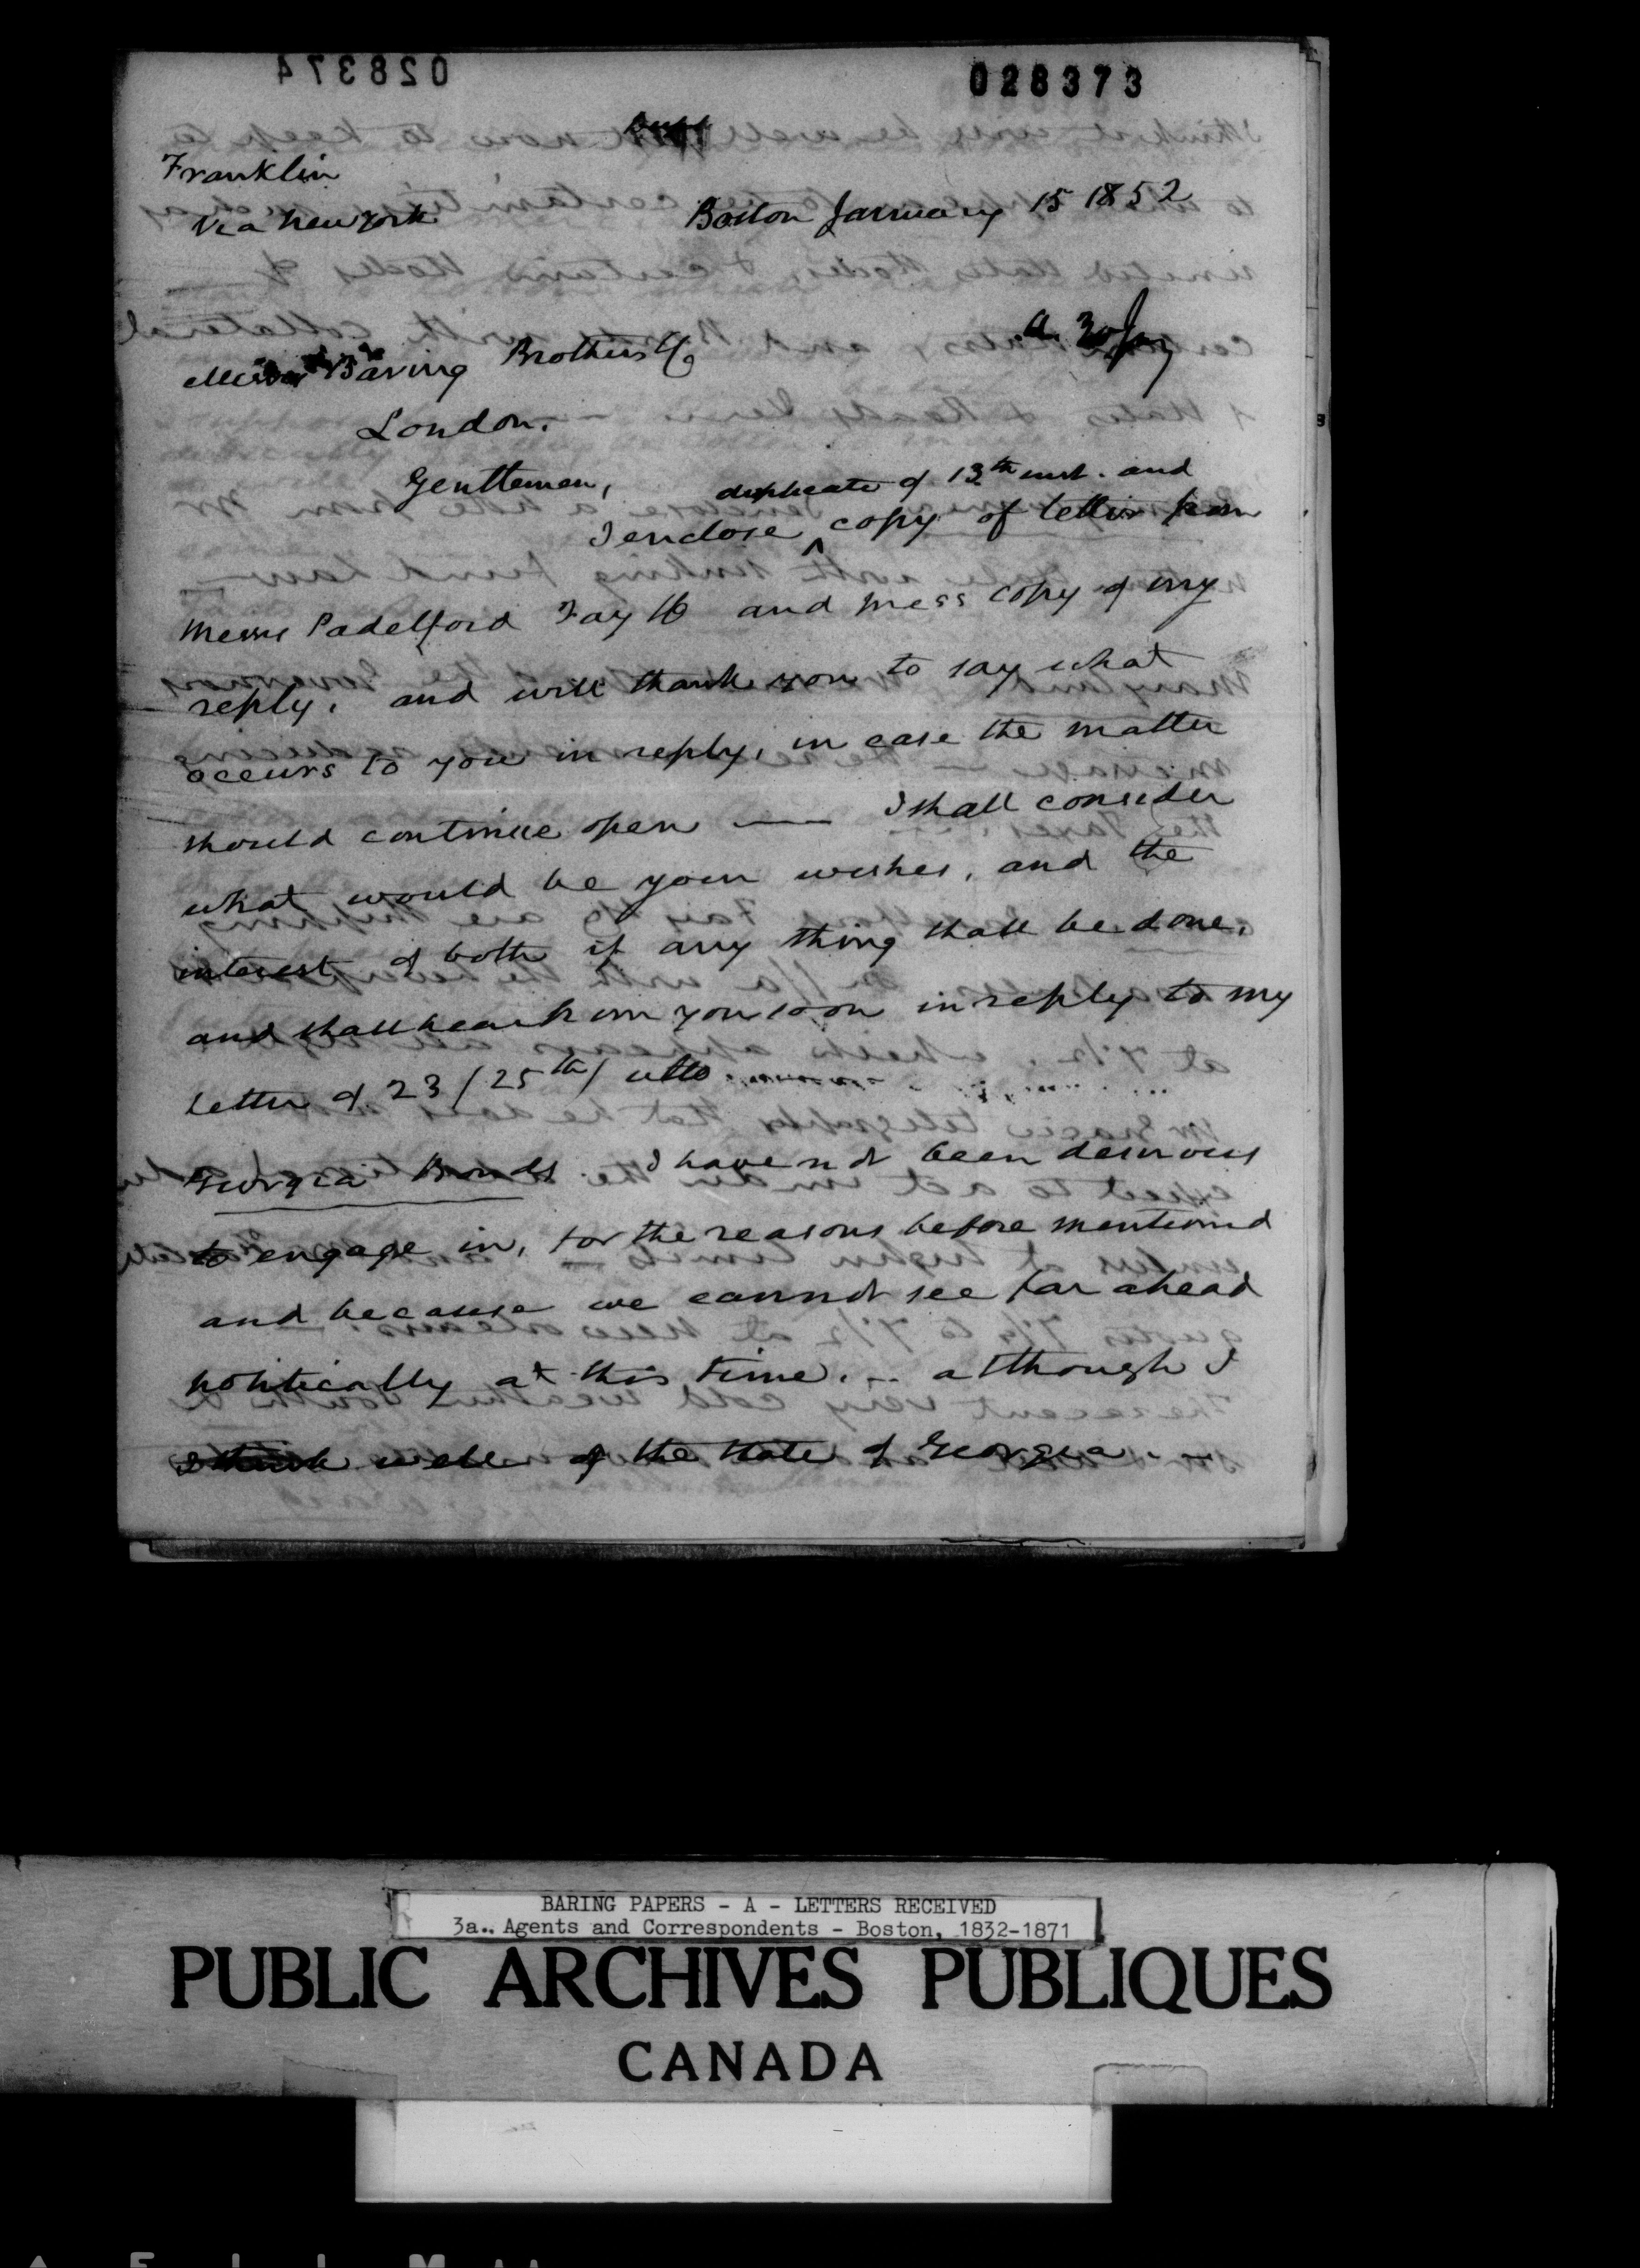 028374
028373
Franklin
Via New York
Boston January 15 1852
a. 30 Jany
Messrs Baring Brothers & Co
London.
Gentlemen,
duplicate of 13th inst. and
I enclose ^ copy of letter from
Messrs Padelford Fay & Co and press copy of my
reply, and will thank you to say what
occurs to you in reply, in case the matter
should continue open —— I shall consider
what would be your wishes, and the
interest of both if any thing shall be done,
and shall hear from you soon in reply to my
letter of 23/25th/ ulto.
Georgia Bonds. I have not been desirous
to engage in, for the reasons before mentioned
and because we cannot see far ahead
politically at this time. — although I
I think well of the State of Georgia. —
BARING PAPERS - A - LETTERS RECEIVED
3a.. Agents and Correspondents - Boston, 1832-1871
PUBLIC ARCHIVES PUBLIQUES
CANADA